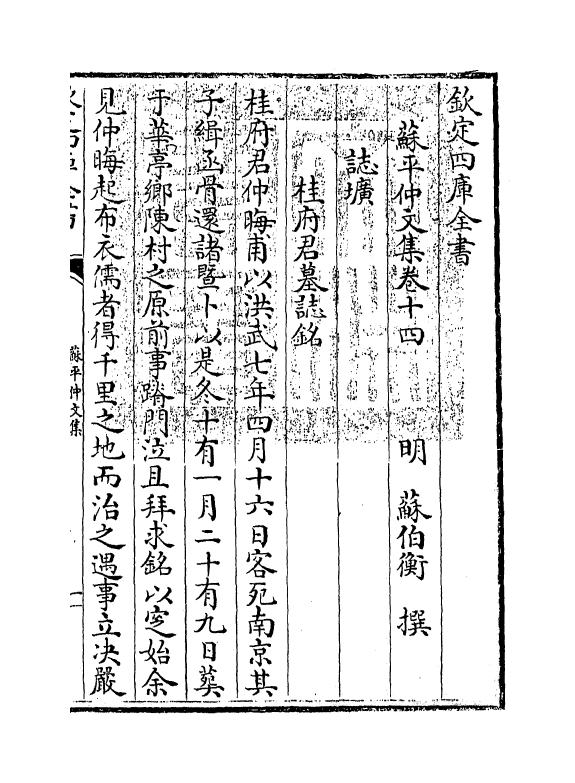 欽定四庫全書
蘇平仲文集卷十四
明 蘇伯衡 撰
誌壙
桂府君墓誌銘
桂府君仲晦甫以洪武七年四月十六日客死南京其
子緝函骨還諸暨卜以是冬十有一月二十有九日葬
于華亭鄉陳村之原前事踏門泣且拜求銘以窆始余
見仲晦起布衣儒者得千里之地而治之遇事立決嚴
蘇平仲文集
一